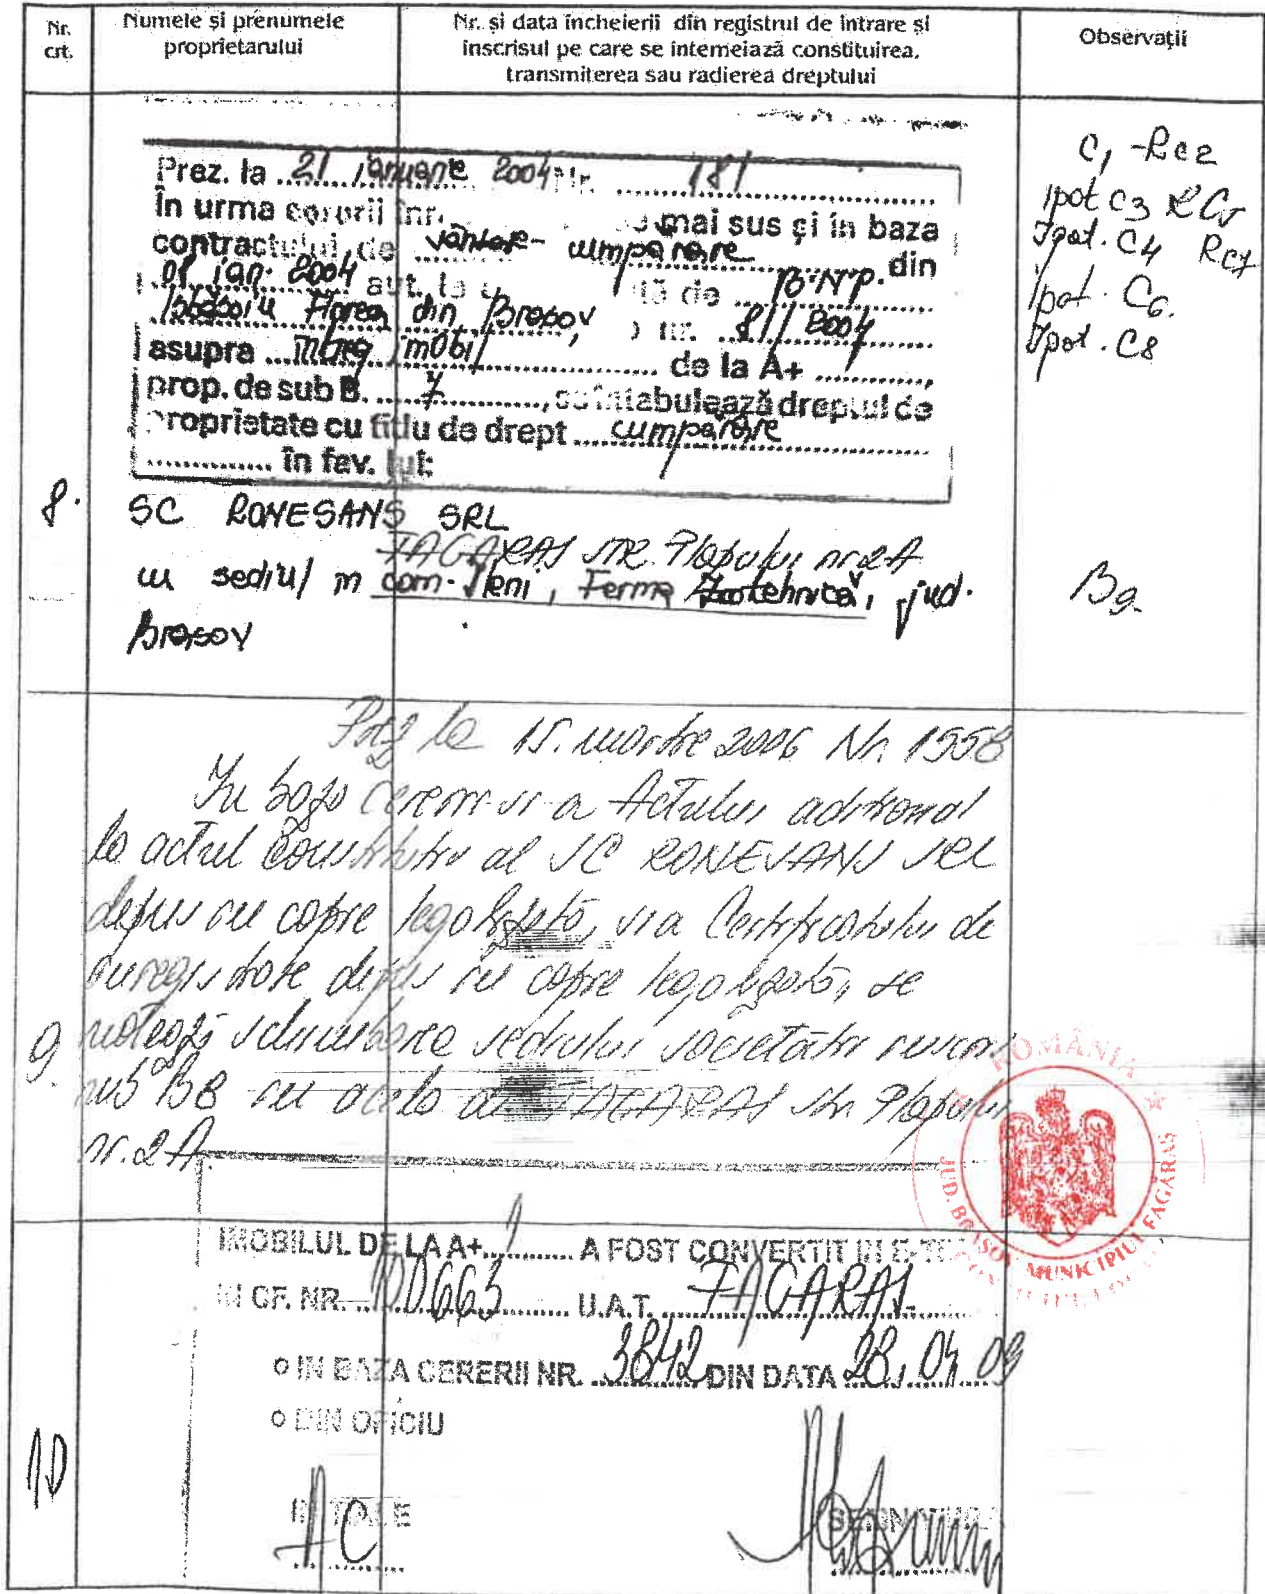 Nr. crt.
Numele și prenumele proprietarului
Nr. și data încheierii din registrul de intrare și înscrisul pe care se întemeiază constituirea, transmiterea sau radierea dreptului
Observații
Prez. la 21 ianuarie 2004 Nr. 181
În urma cererii înr. mai sus și în baza
contractului de vânzare-cumpărare din
ian. 2004 aut. la de B.N.P.
Florea din Brașov nr. 81/2004
asupra întreg imobil de la A+
prop. de sub B. 7, se întabulează dreptul de
proprietate cu titlu de drept cumpărare
în fav. lui:
8.
SC RONESANS SRL
FAGARAS STR. Plopului nr 2A
cu sediul în com. Ileni, Ferma Zootehnică, jud.
Brașov
C1 - Rc2
Ipot C3 RC5
Ipot. C4 RC7
Ipot. C6.
Ipot. C8
B9.
la 15. martie 2006 Nr. 1558
In baza cererii si a Actului aditional
la actul constitutiv al SC RONESANS SRL
depus in copie legalizată, si a Certificatului de
inregistrare depus in copie legalizată, se
9.
notează schimbarea sediului societății
sub B8 cu acela din FAGARAS str Plopului
nr. 2A.
IMOBILUL DE LA A+ 1 A FOST CONVERTIT IN
IN CF. NR. 100663 U.A.T. FAGARAS
o IN BAZA CERERII NR. 3842 DIN DATA 28.04.09
o DIN OFICIU
10
AC
ROMÂNIA
JUD. BRASOV MUNICIPIUL FAGARAS